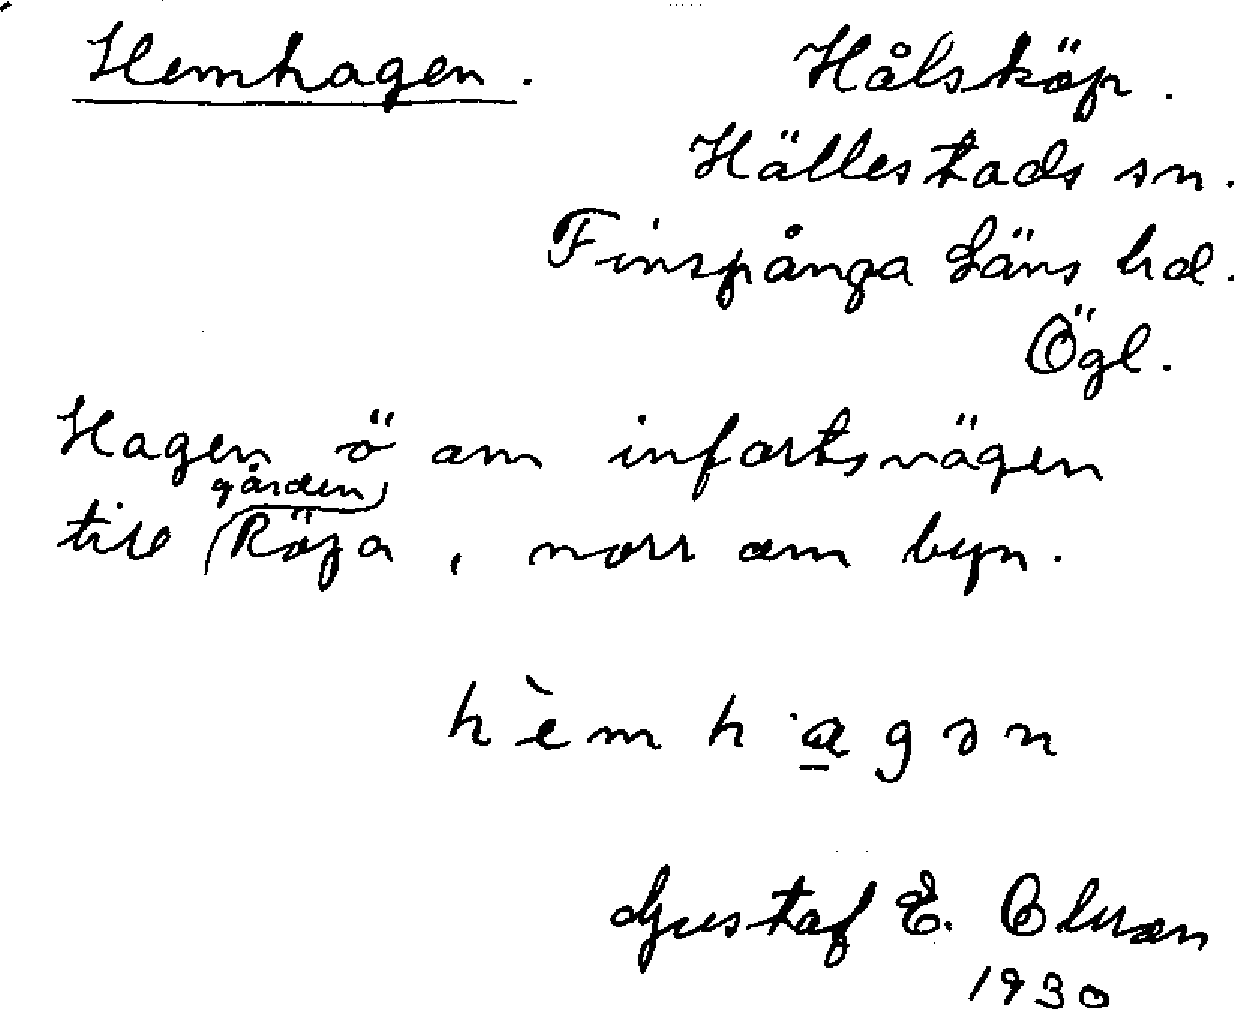 Hemhagen. Hålsköp.
Hällestads sn.
Finspånga Läns hd.
Ögl.
Hagen ö om infartsvägen
gården
till Röja, norr om byn.
hèmhagən
Gustaf E.
1930